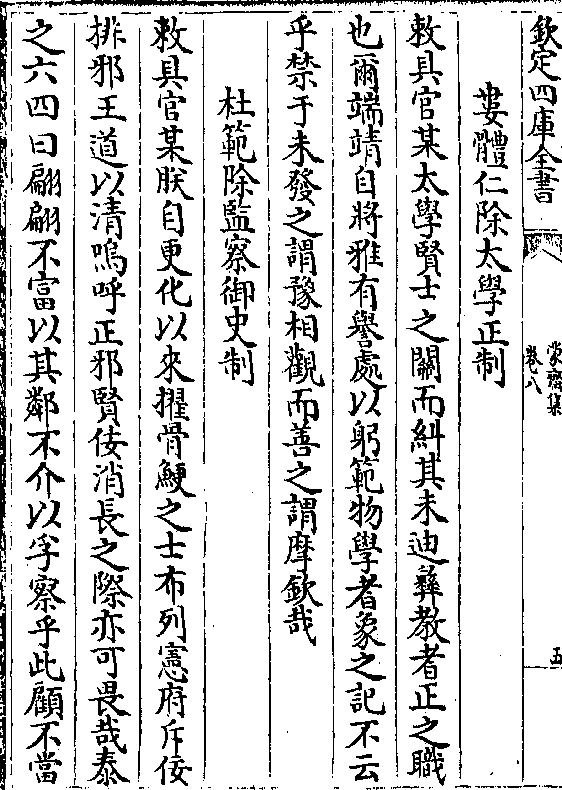 欽定四庫全書
蒙齋集
卷八
五
婁體仁除太學正制
敕具官某太學賢士之關而糾其未迪彝教者正之職
也爾端靖自將雅有譽處以躬範物學者象之記不云
乎禁于未發之謂豫相觀而善之謂摩欽哉
杜範除監察御史制
敕具官某朕自更化以來擢骨鯁之士布列憲府斥佞
排邪王道以清嗚呼正邪賢佞消長之際亦可畏哉泰
之六四曰翩翩不富以其鄰不介以孚察乎此顧不當